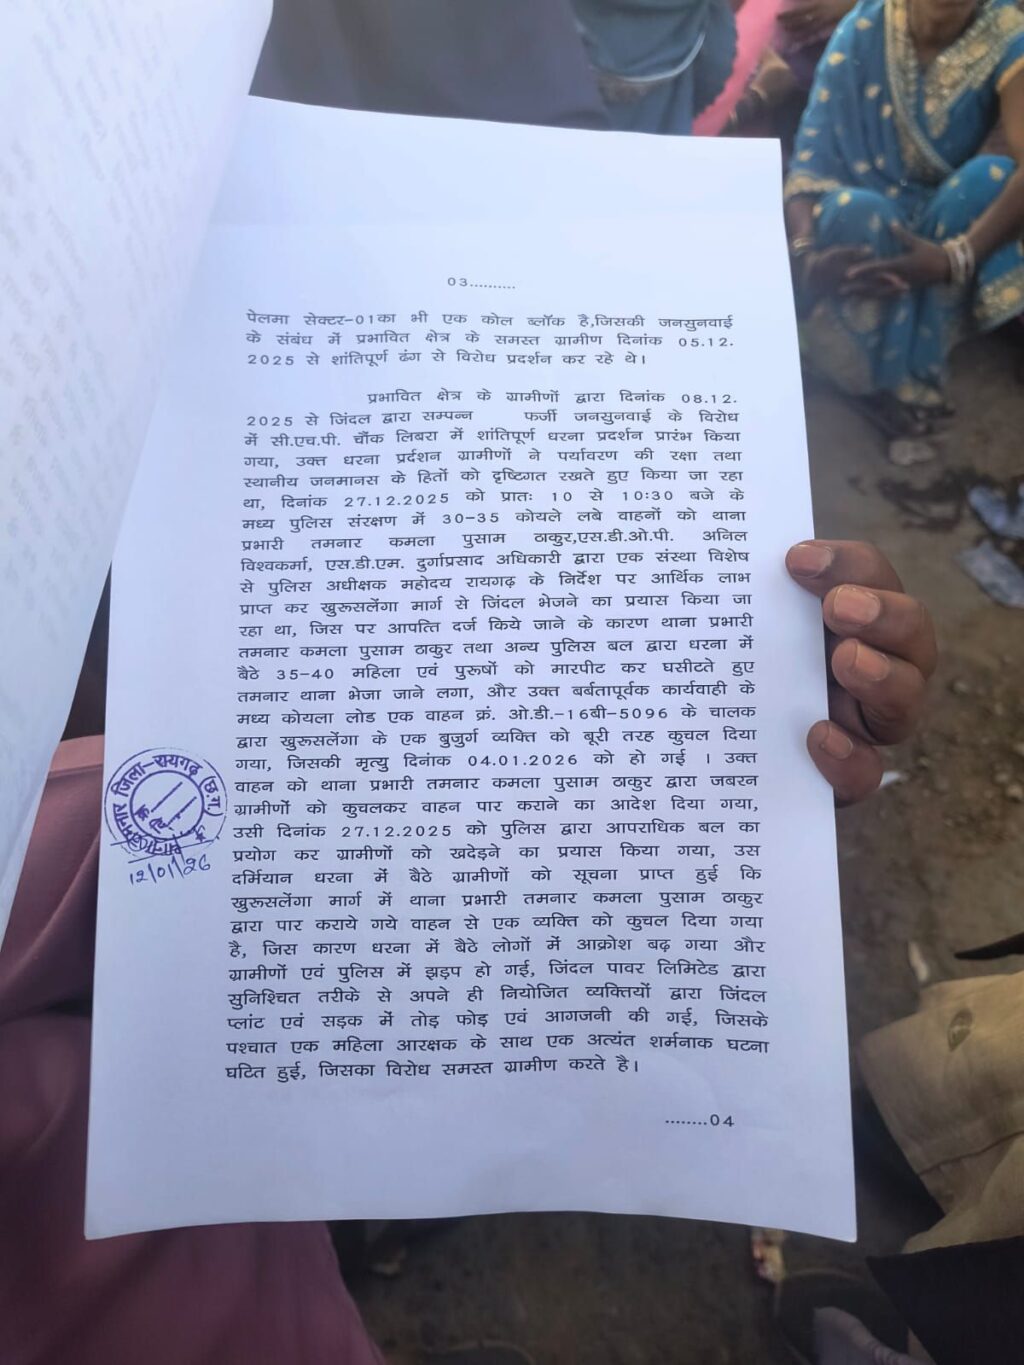 03..........
पेलमा सेक्टर-01का भी एक कोल ब्लॉक है,जिसकी जनसुनवाई
के संबंध में प्रभावित क्षेत्र के समस्त ग्रामीण दिनांक 05.12.
2025 से शांतिपूर्ण ढंग से विरोध प्रदर्शन कर रहे थे।
प्रभावित क्षेत्र के ग्रामीणों द्वारा दिनांक 08.12.
2025 से जिंदल द्वारा सम्पन्न फर्जी जनसुनवाई के विरोध
में सी.एच.पी. चौंक लिबरा में शांतिपूर्ण धरना प्रदर्शन प्रारंभ किया
गया, उक्त धरना प्रर्दशन ग्रामीणों ने पर्यावरण की रक्षा तथा
स्थानीय जनमानस के हितों को दृष्टिगत रखते हुए किया जा रहा
था, दिनांक 27.12.2025 को प्रातः 10 से 10:30 बजे के
मध्य पुलिस संरक्षण में 30-35 कोयले लबे वाहनों को थाना
प्रभारी तमनार कमला पुसाम ठाकुर,एस.डी.ओ.पी. अनिल
विश्वकर्मा, एस.डी.एम. दुर्गाप्रसाद अधिकारी द्वारा एक संस्था विशेष
से पुलिस अधीक्षक महोदय रायगढ़ के निर्देश पर आर्थिक लाभ
प्राप्त कर खुरूसलेंगा मार्ग से जिंदल भेजने का प्रयास किया जा
रहा था, जिस पर आपत्ति दर्ज किये जाने के कारण थाना प्रभारी
तमनार कमला पुसाम ठाकुर तथा अन्य पुलिस बल द्वारा धरना में
बैठे 35-40 महिला एवं पुरूषों को मारपीट कर घसीटते हुए
तमनार थाना भेजा जाने लगा, और उक्त बर्बतापूर्वक कार्यवाही के
मध्य कोयला लोड एक वाहन क्रं. ओ.डी.-16बी-5096 के चालक
द्वारा खुरूसलेंगा के एक बुजुर्ग व्यक्ति को बूरी तरह कुचल दिया
गया, जिसकी मृत्यु दिनांक 04.01.2026 को हो गई । उक्त
वाहन को थाना प्रभारी तमनार कमला पुसाम ठाकुर द्वारा जबरन
ग्रामीणों को कुचलकर वाहन पार कराने का आदेश दिया गया,
उसी दिनांक 27.12.2025 को पुलिस द्वारा आपराधिक बल का
प्रयोग कर ग्रामीणों को खदेड़ने का प्रयास किया गया, उस
दर्मियान धरना में बैठे ग्रामीणों को सूचना प्राप्त हुई कि
खुरूसलेंगा मार्ग में थाना प्रभारी तमनार कमला पुसाम ठाकुर
द्वारा पार कराये गये वाहन से एक व्यक्ति को कुचल दिया गया
है, जिस कारण धरना में बैठे लोगों में आक्रोश बढ़ गया और
ग्रामीणों एवं पुलिस में झड़प हो गई, जिंदल पावर लिमिटेड द्वारा
सुनिश्चित तरीके से अपने ही नियोजित व्यक्तियों द्वारा जिंदल
प्लांट एवं सड़क में तोड़ फोड़ एवं आगजनी की गई, जिसके
पश्चात एक महिला आरक्षक के साथ एक अत्यंत शर्मनाक घटना
घटित हुई, जिसका विरोध समस्त ग्रामीण करते है।
........04
जिला-रायगढ़ (छ.ग.)
12/01/26